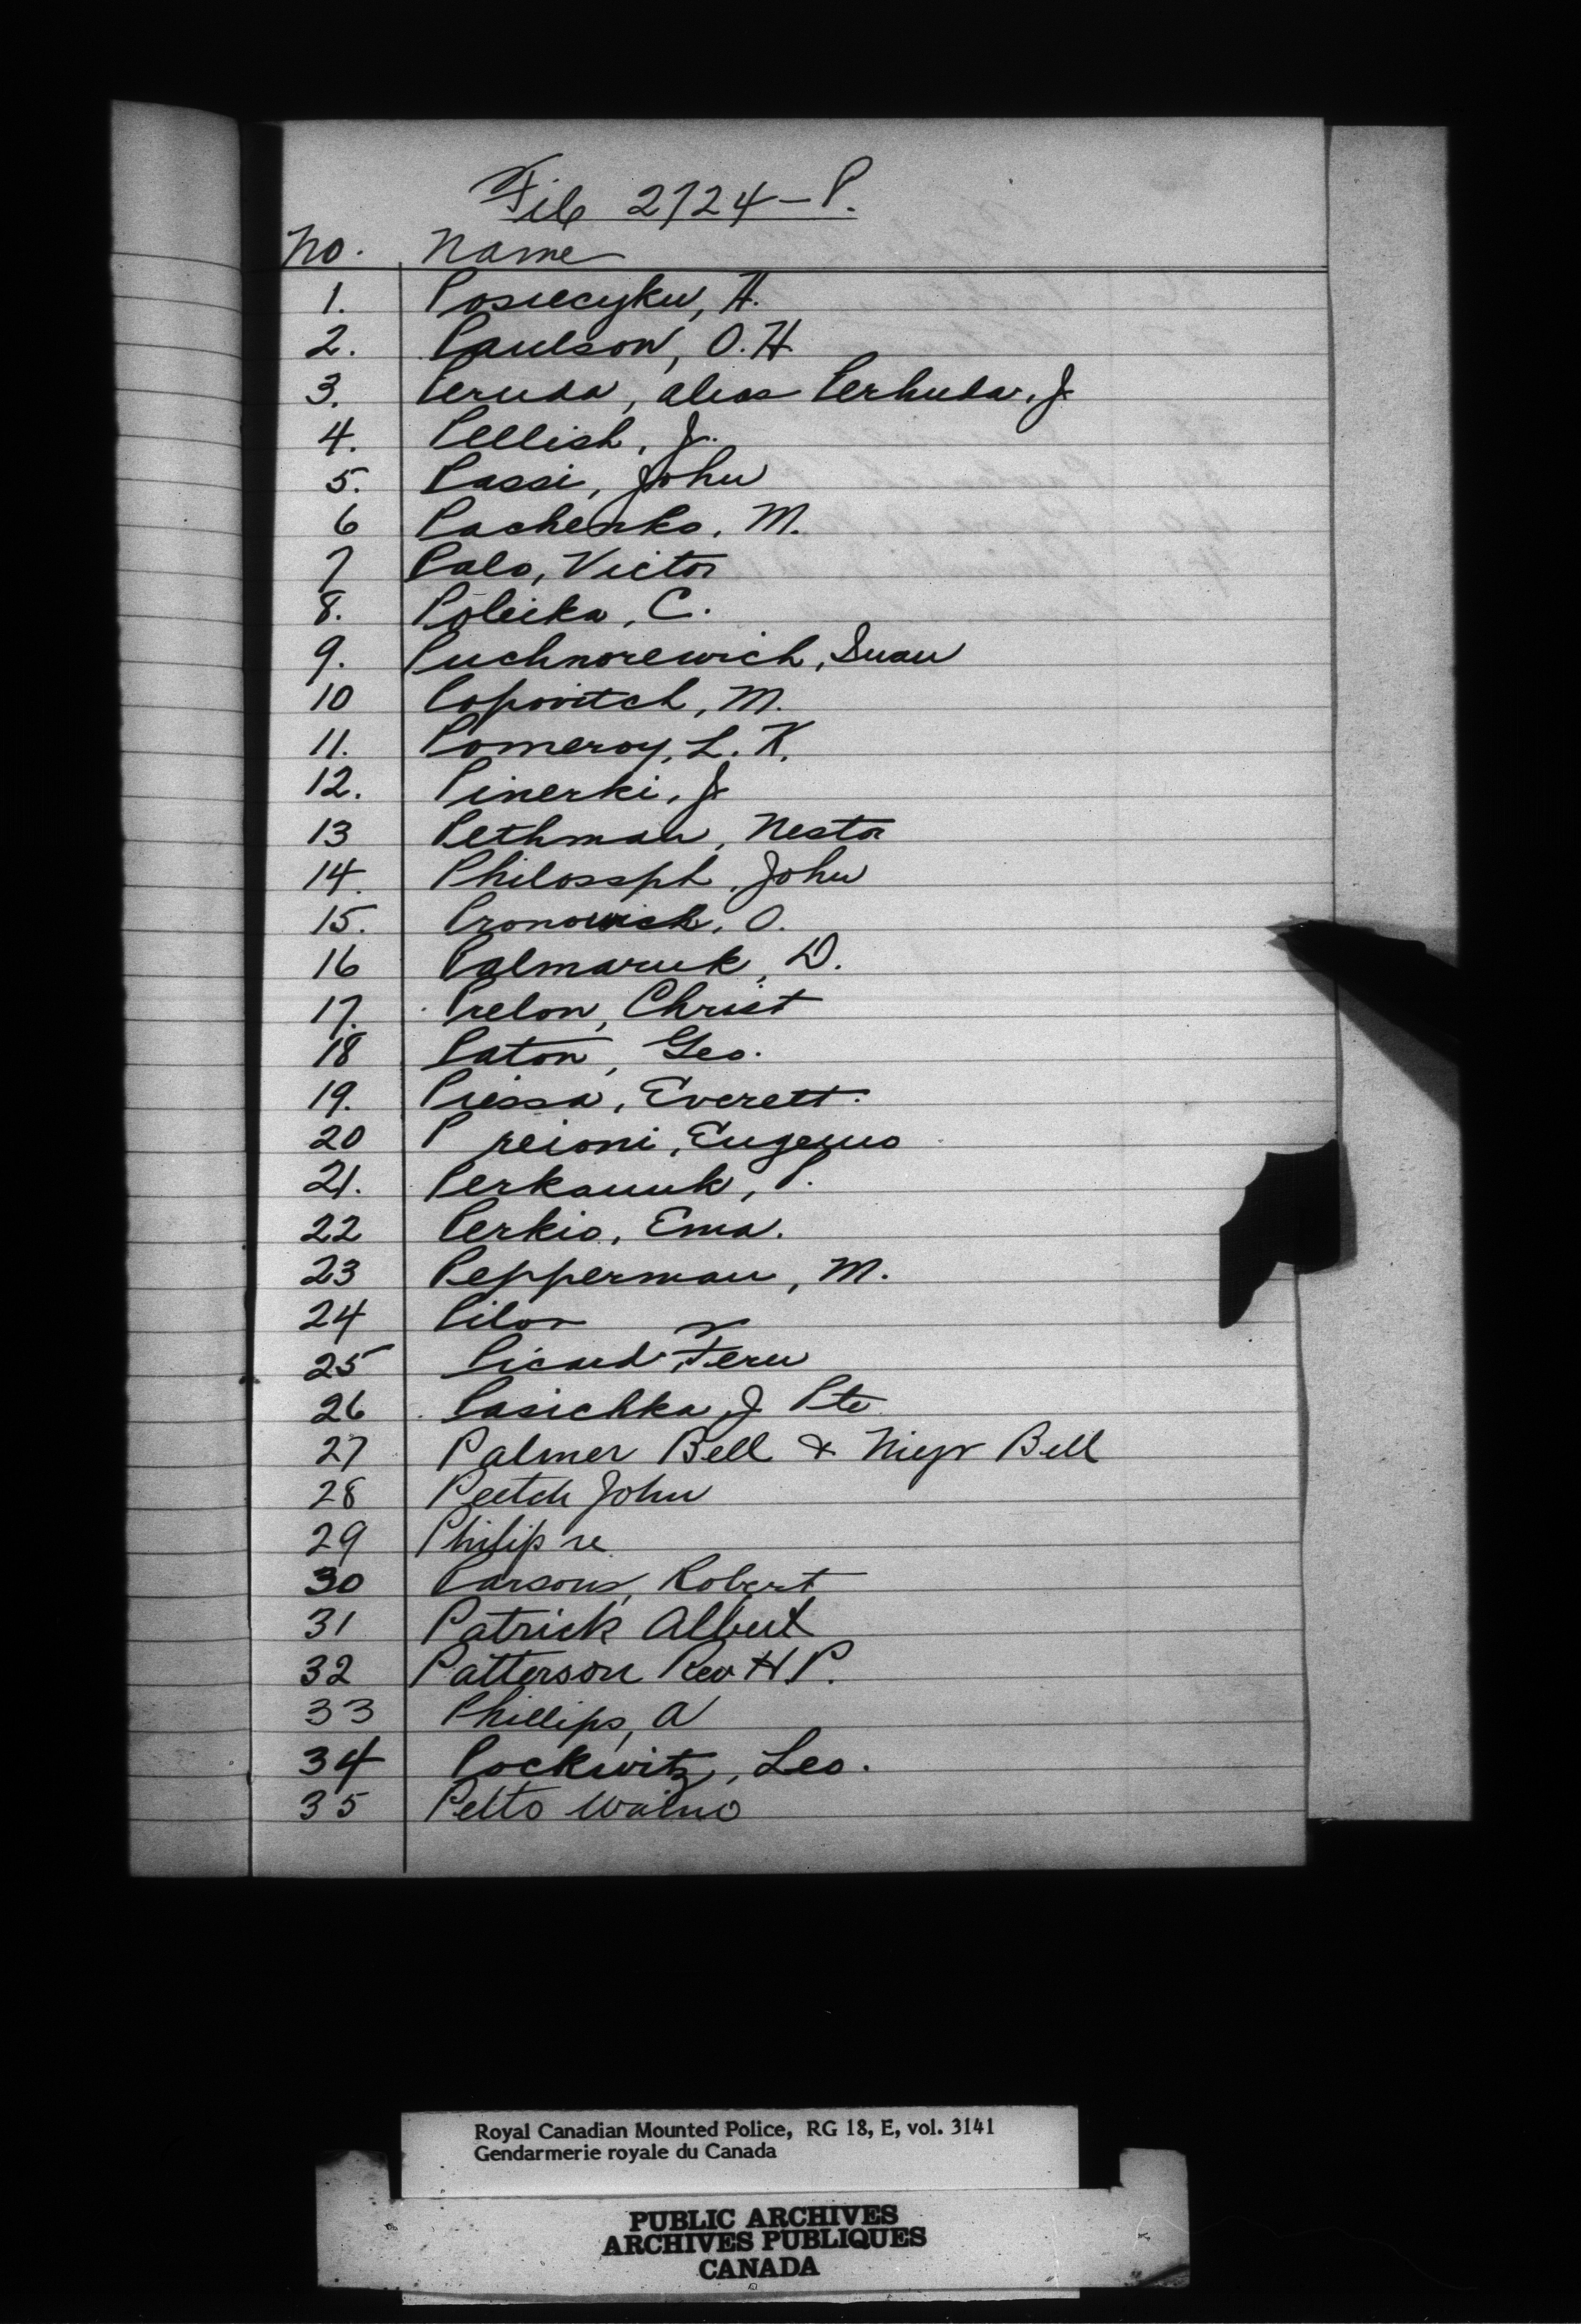 File 2724-P.
No. Name
1. Posiecyku, H.
2. Paulson, O.H.
3. Peruda, alias Perhuda, J.
4. Pellish, J.
5. Passi, John
6 Pachenko, M.
7 Palo, Victor
8. Poleika, C.
9. Puchnorewich, Ivan
10 Popovitch, M.
11. Pomeroy, L. K.
12. Pinerki, J.
13 Pethman, Nestor
14. Philosoph, John
15. Pronowich, O.
16 Palmaruk, D.
17. Prelon, Christ
18 Paton, Geo.
19. Piessa, Everett.
20 P reioni, Eugenio
21. Perkauuk, P.
22 Perkio, Ema.
23 Pepperman, M.
24 Pilon
25 Picard, Fern
26 Pasichka, J Pte
27 Palmer Bell & Bell
28 Peetch John
29 Philip re
30 Parsons, Robert
31 Patrick Albert
32 Patterson Rev H.P.
33 Phillips, A
34 Pockwitz, Leo.
35 Pelto Waino
Royal Canadian Mounted Police, RG 18, E, vol. 3141
Gendarmerie royale du Canada
PUBLIC ARCHIVES
ARCHIVES PUBLIQUES
CANADA